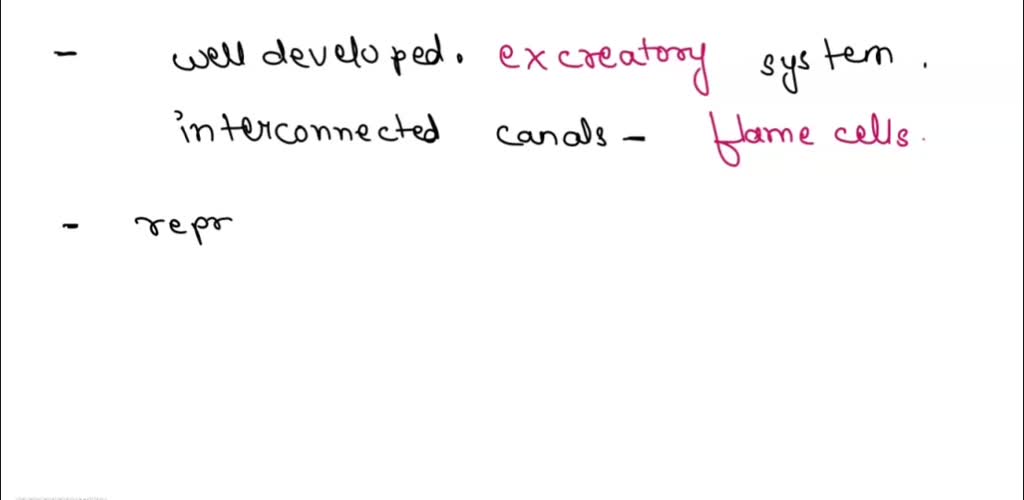 - well developed. excreatory system.
interconnected canals - flame cells.
- repr